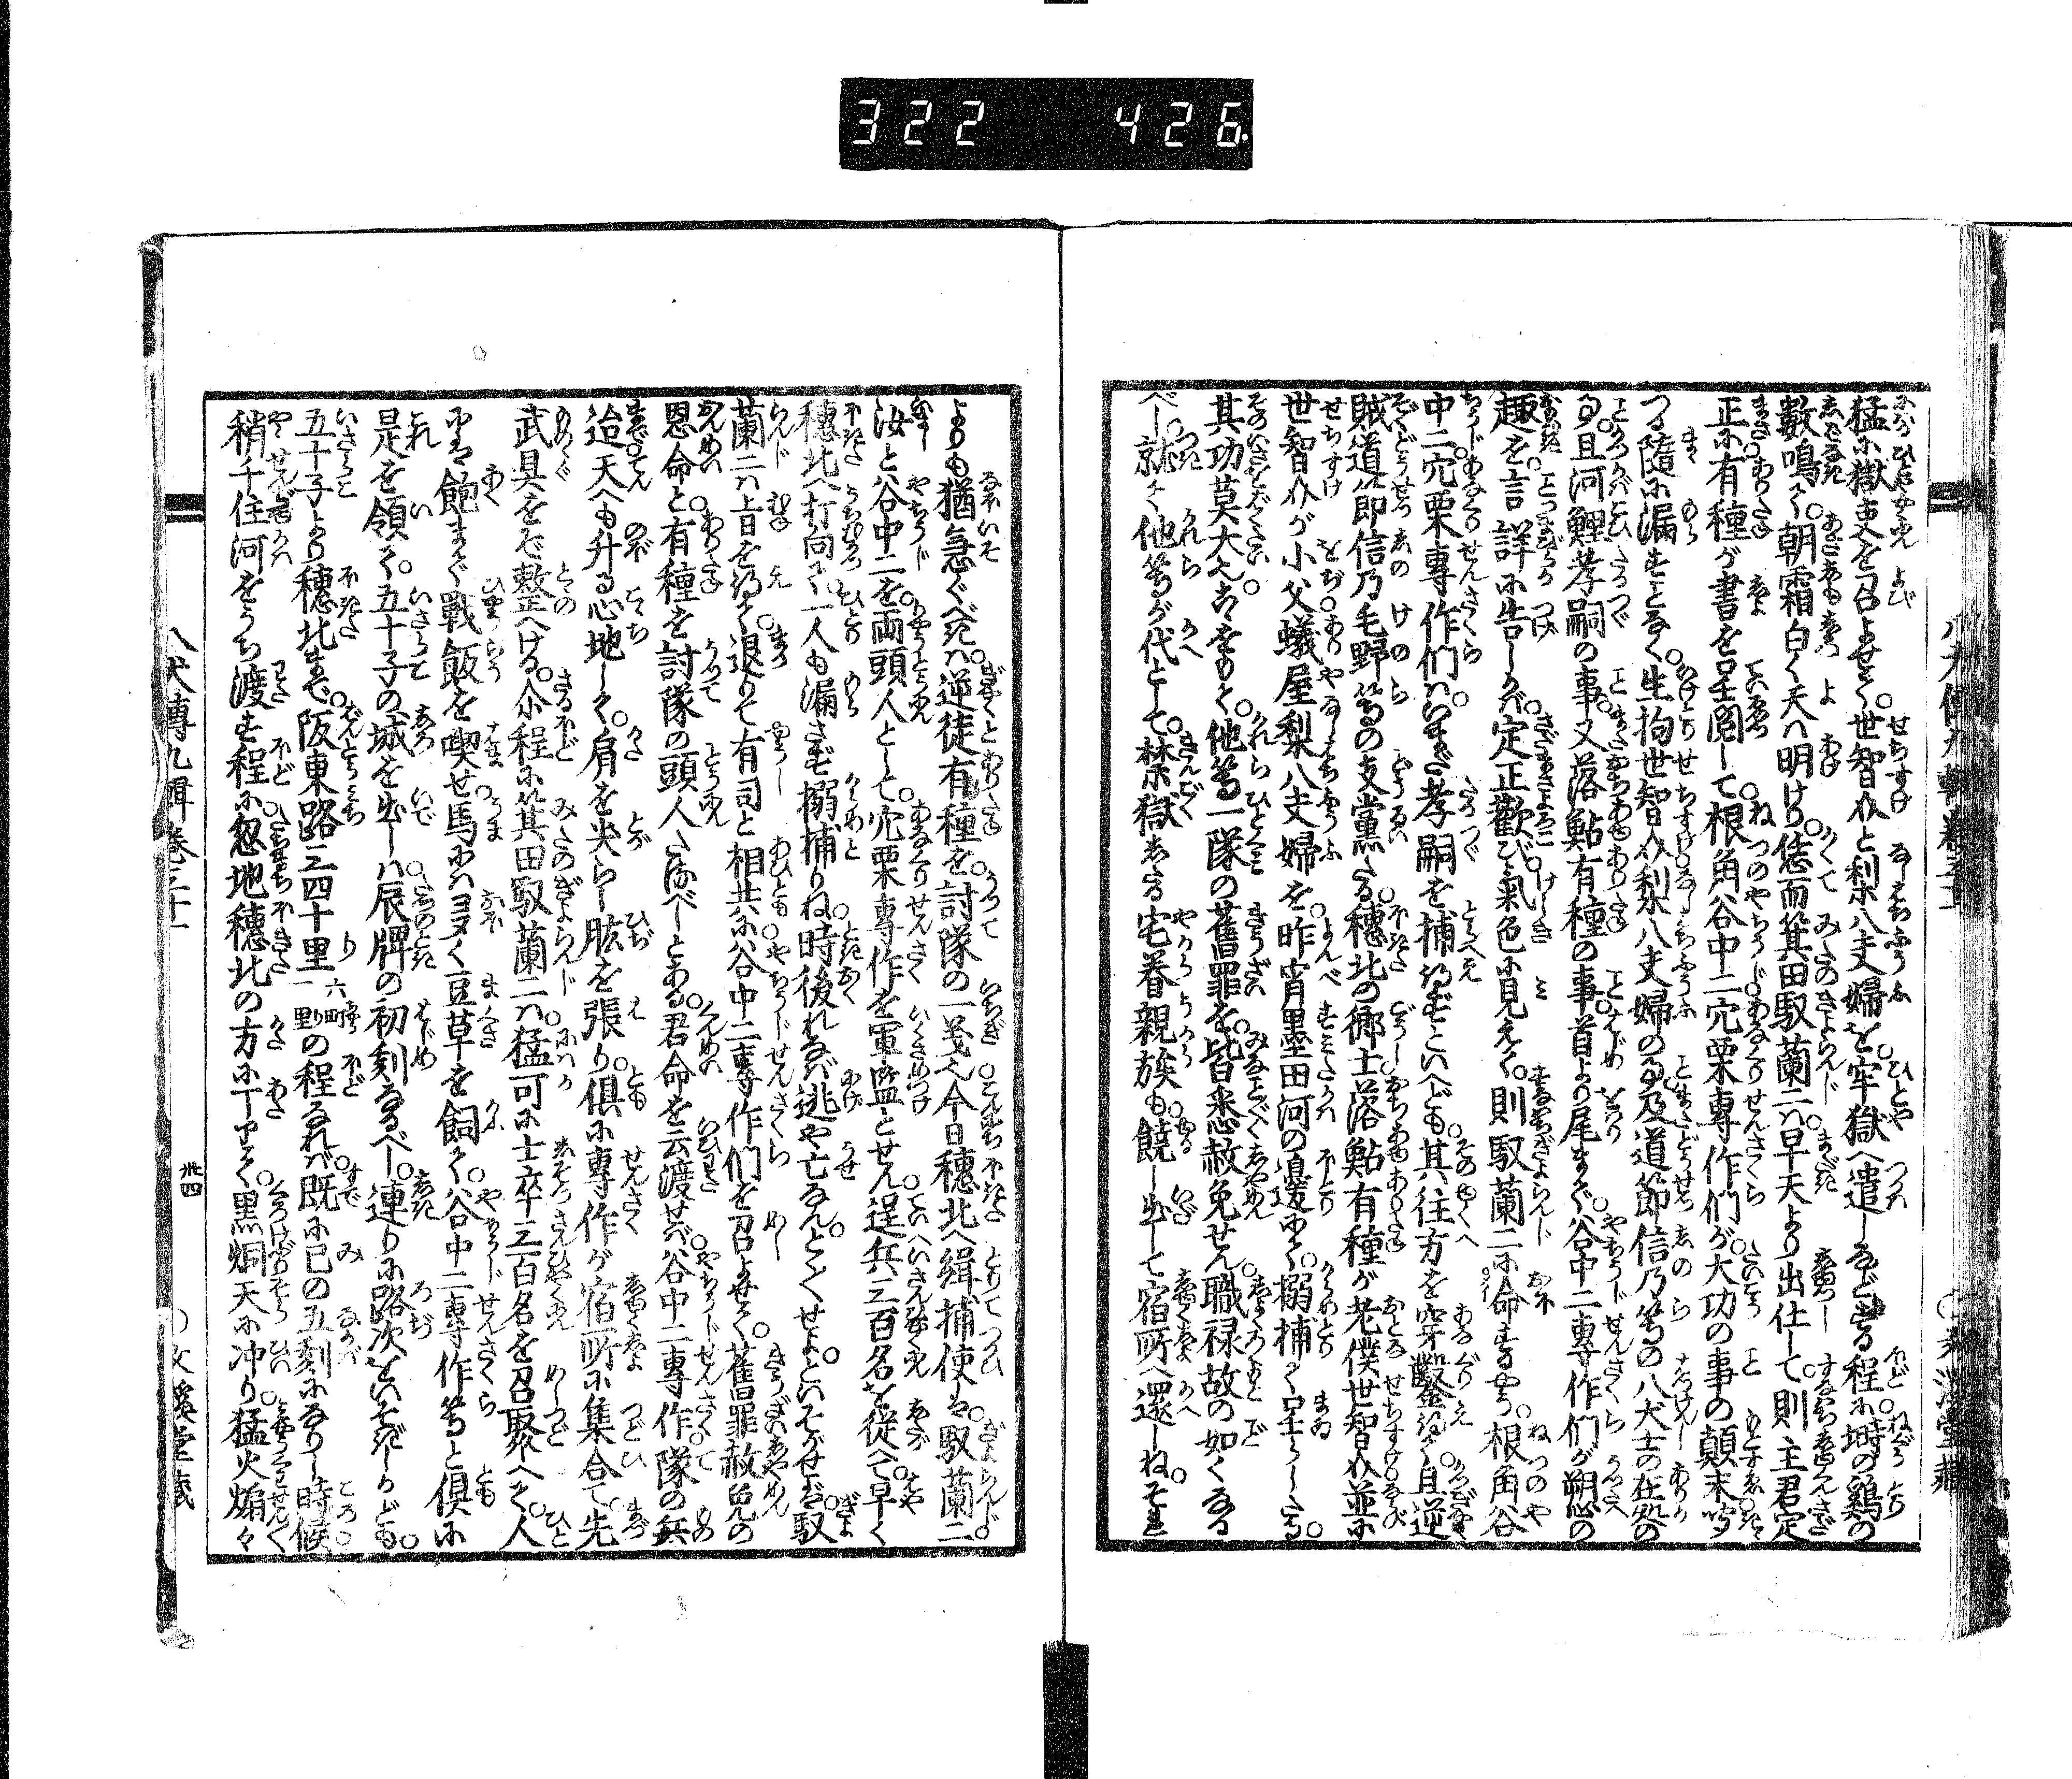 322 426
猛に獄吏を召よせて。世智介と梨八夫婦を。牢獄へ遣しなどする程に。塒の鶏の
数鳴て。朝霜白く天は明けり。恁而箕田馭蘭二は。早天より出仕して。則主君定
正に。有種が書を呈閲して。根角谷中二穴栗専作們が。大功の事の顛末。
つる隨に漏すことなく。生拘世智介梨八夫婦の。及道節信乃等の八犬士の在処の
且河鯉孝嗣の事。又落鮎有種の事。首より尾まで。谷中二専作們が
趣を。言詳に告しかば。定正歓び気色に見えて。則馭蘭二に命ずるやう。根角谷
中二。穴栗専作們は。いまだ孝嗣を捕得ずといへども。其往方を穿鑿得て。且逆
賊道節信乃毛野等の支黨たる。穂北の郷士。落鮎有種が老僕世智介並に
世智介が小父。蟻屋梨八夫婦を。昨宵墨田河の邊にて。搦捕て呈らしたる。
其功莫大也。こゝをもて。他等一隊の旧罪を。皆悉赦免せん。職禄故の如くなる
べし。就て他等が代として。禁獄したる。宅眷親族も。饒し出して宿所へ還しね。そは
よりも猶急ぐべきは。逆徒有種を。討隊の一義也。今日穂北へ緝捕使は。馭蘭二
汝と谷中二を。両頭人として。穴栗専作を軍監とせん。逞兵三百名を従へて。早く
穂北へ打向て。一人も漏さず搦捕りね。時後れなば逃や亡なん。とく〳〵せよ。といそがせば。馭
蘭二は旨を得て。退りて有司と相共に。谷中二専作們を召よせて。旧罪赦免の
恩命と。有種を討隊の頭人たるべしとある。君命を云渡せば。谷中二専作。隊の兵
迨天へも升る心地して。肩を尖らし肱を張り。倶に専作が宿所に集合て。先
武具をぞ整へける。尒程に箕田馭蘭二は。猛可に士卒三百名を召聚へて。人
には飽まで戦飯を喫せ。馬には多く豆草を飼て。谷中二専作等と倶に
是を領て。五十子の城を出しは。辰牌の初刻なるべし。連りに路次をいそぎしかども。
五十子より穂北まで。阪東路三四十里六町一里の程なれば。既に巳の五刻になりし時候。
稍千住河をうち渡す程に。忽地穂北の方に当りて。黒烟天に冲り。猛火煽々
八犬傳九輯巻三十一
卅四
文溪堂藏